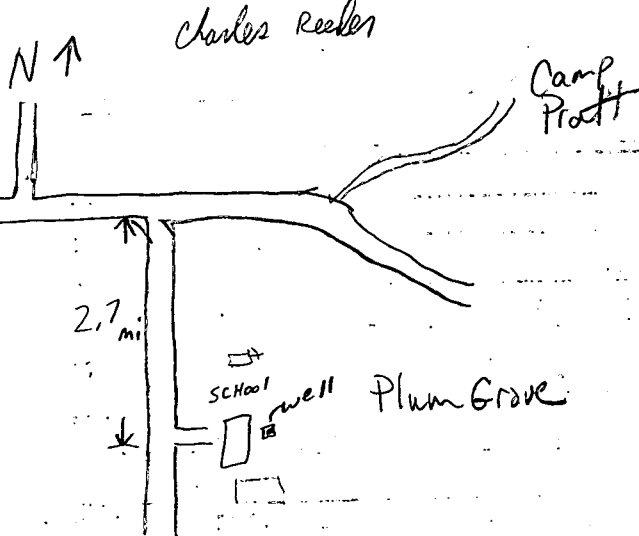 Charles
N ↑
Camp
Pratt
2.7 mi
SCHOOL
well
Plum Grove